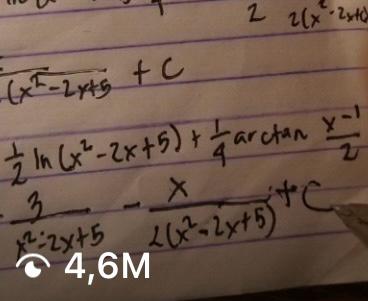 2 2(x²-2x+
(x²-2x+5 + C
1/2 ln(x²-2x+5) + 1/4 arctan x-1/2
3/x²-2x+5 - x/2(x²-2x+5) + C
4,6M